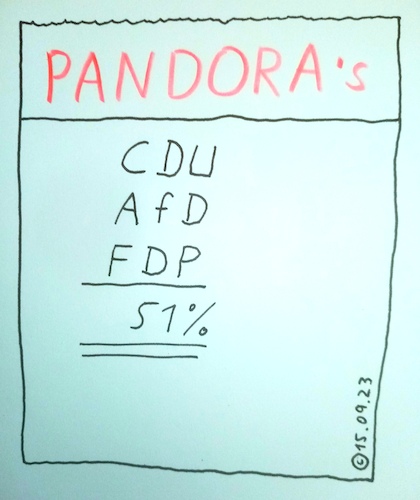 PANDORA's
CDU
AfD
FDP
51%
©15.09.23